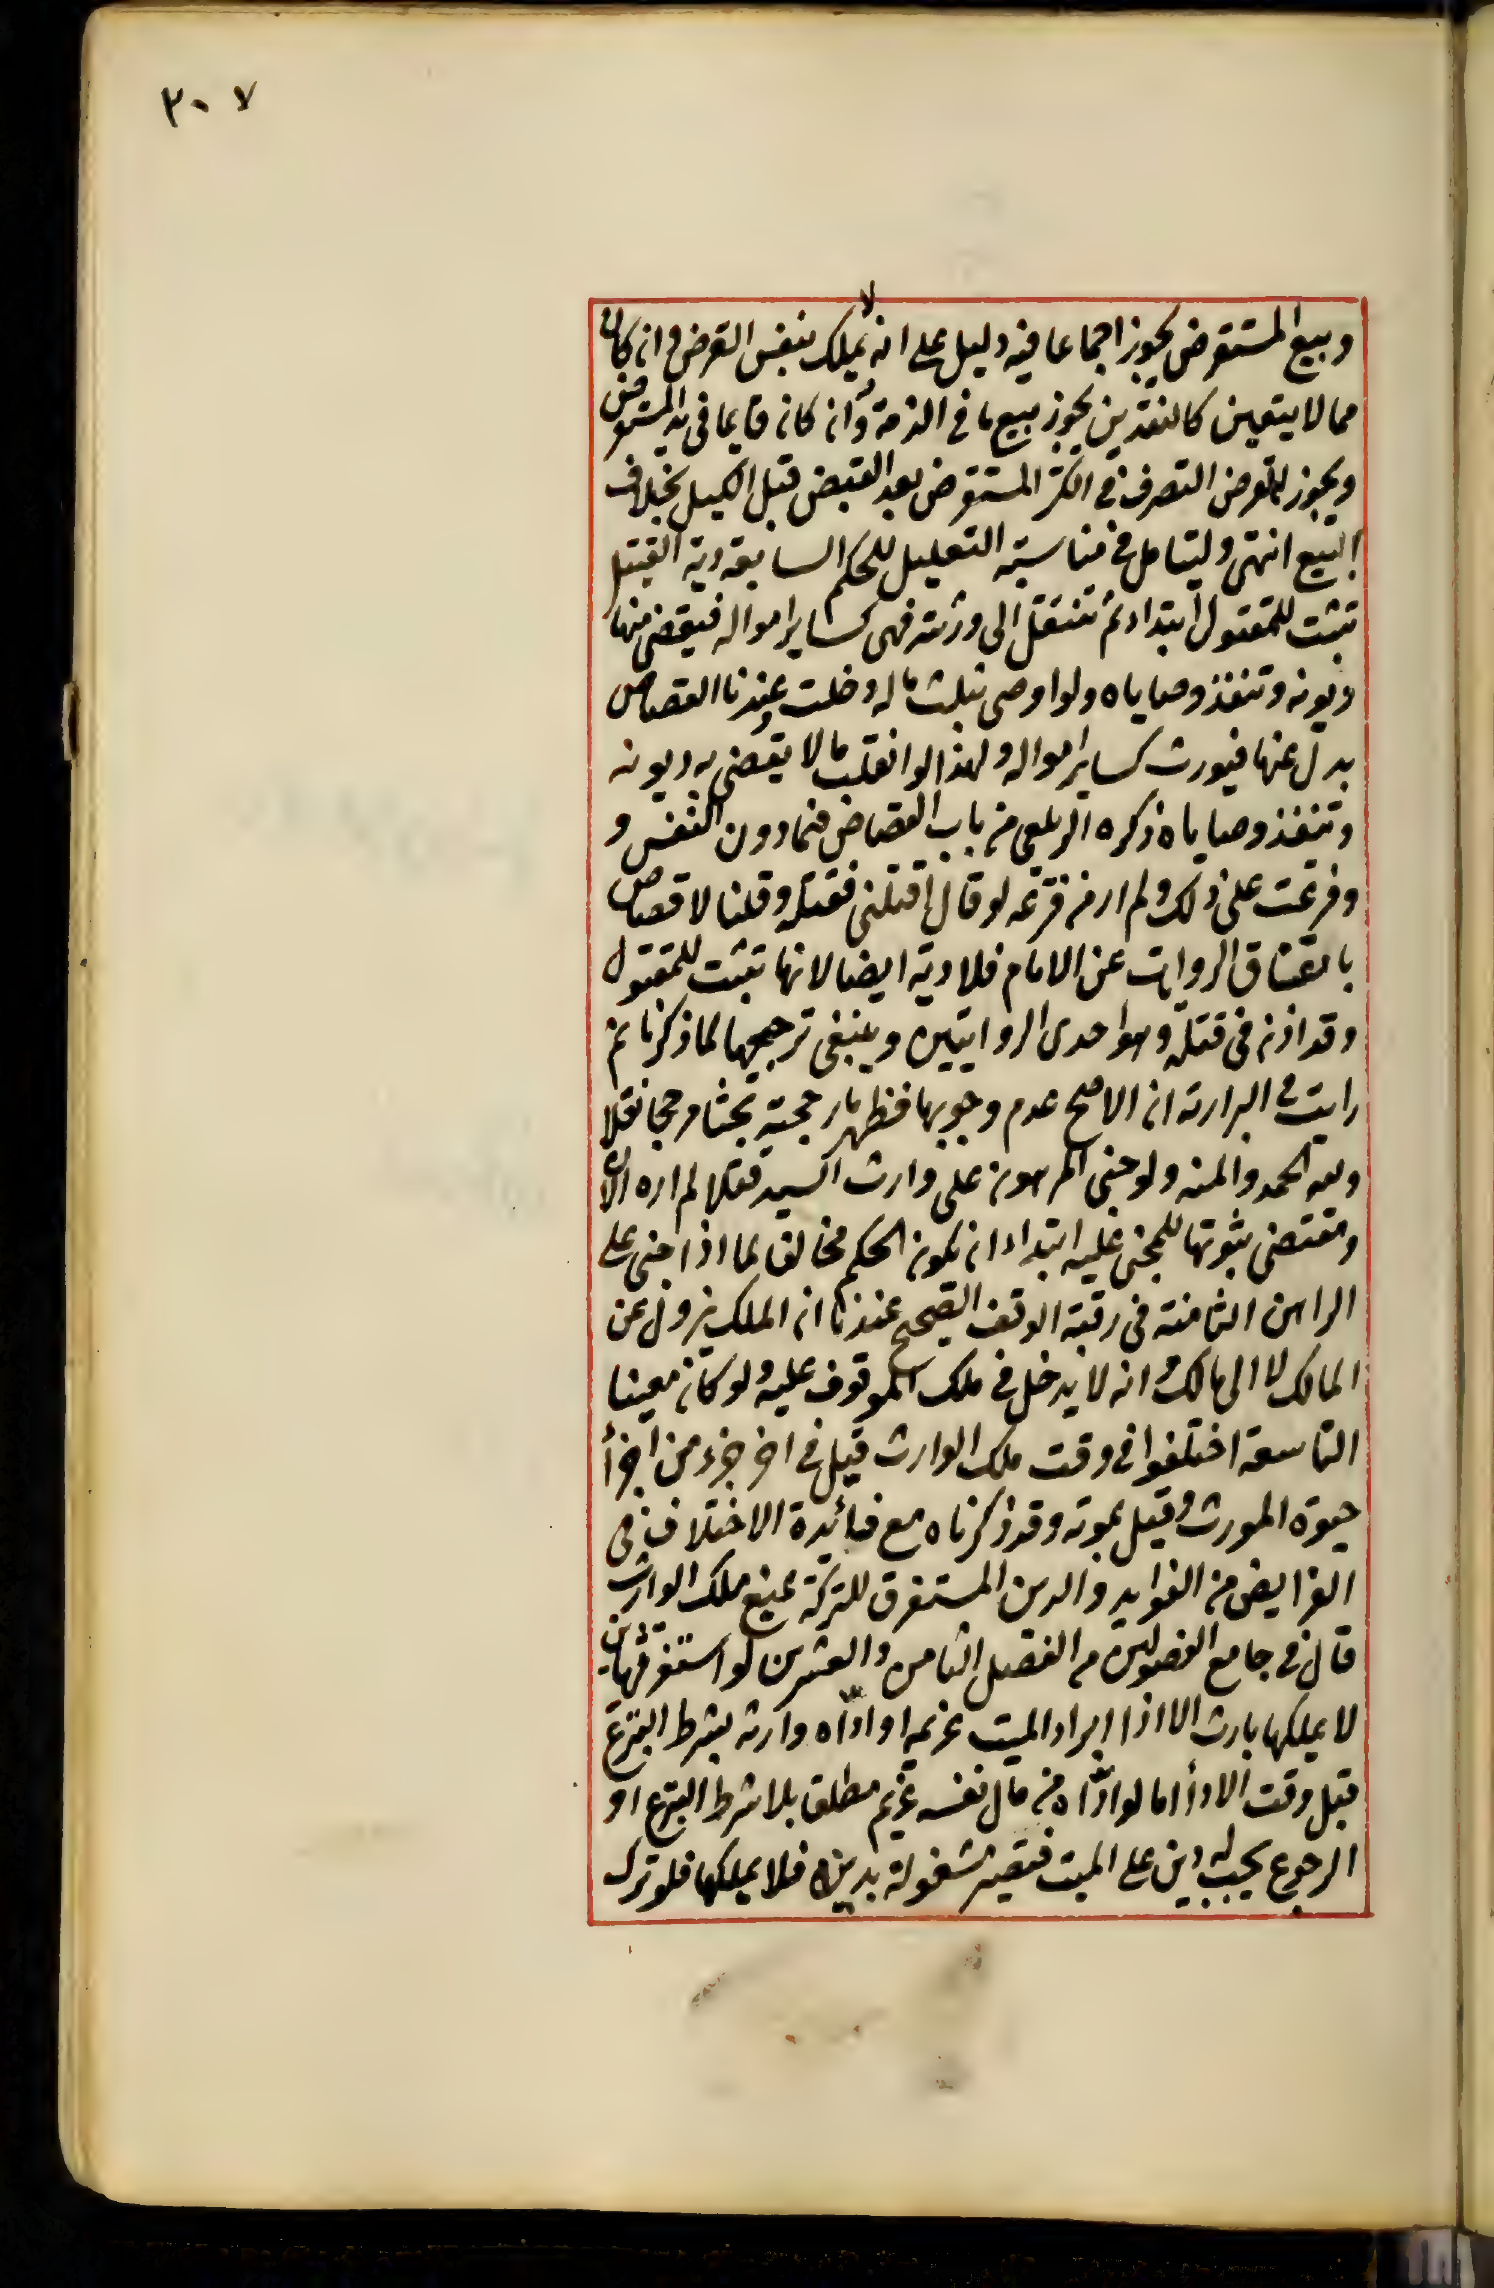 ٣٠٧
وبيع المستقرض يجوز اجماعا فيه دليل على انه لا يملك بنفس القرض وان كان
مما لا يتعين كالنقدين يجوز بيع ما في الذمة وان كان قايما في يد المستقرض
ويجوز للمقرض التصرف في الكر المستقرض بعد القبض قبل الكيل بخلاف
البيع انتهى وليتامل في مناسبة التعليل للحكم السابعة دية القتيل
تثبت للمقتول ابتداء ثم تنتقل الى ورثته فهى كساير امواله فيقضى منها
ديونه وتنفذ وصاياه ولو اوصى بثلث ماله دخلت وعندنا القصاص
بدل عنها فيورث كساير امواله ولهذا لو انقلب مالا يقضى به ديونه
وتنفذ وصاياه ذكره الزيلعى من باب القصاص فيما دون النفس و
وفرعت على ذلك ولم ار من فرعه لو قال اقتلنى فقتله وقلنا لا قصاص
باتفاق الروايات عن الامام فلا دية ايضا لانها تثبت للمقتول
وقد اذن فى قتله وهو احدى الروايتين وينبغى ترجيحها لما ذكرنا ثم
رايت في البزازية ان الاصح عدم وجوبها فظهر ما رجحته بحثا مرجحا نقلا
ولله الحمد والمنه ولو جنى المرهون على وارث السيد فقتله لم اره الان
ومقتضى ثبوتها للمجنى عليه ابتداء ان يكون الحكم مخالفا لما اذا جنى على
الراهن الثامنة فى رقبة الوقف الصحيح عندنا ان الملك يزول عن
المالك لا الى مالك وانه لا يدخل في ملك الموقوف عليه ولو كان معينا
التاسعة اختلفوا في وقت ملك الوارث قيل في اخر جزء من اجزأ
حيوة المورث وقيل بموته وقد ذكرناه مع فائدة الاختلاف فى
الفرايض من الفوايد والدين المستغرق للتركة يمنع ملك الوارث
قال في جامع الفصولين من الفصل الثامن والعشرين لو استغرقها دين
لا يملكها بارث الا اذا ابراء الميت غريمه او اداه وارثه بشرط التبرع
قبل وقت الادأ اما لو اداه من مال نفسه غريم مطلقا بلا شرط التبرع او
الرجوع يجب له دين على الميت فتصير مشغولة بدينه فلا يملكها فلو ترك